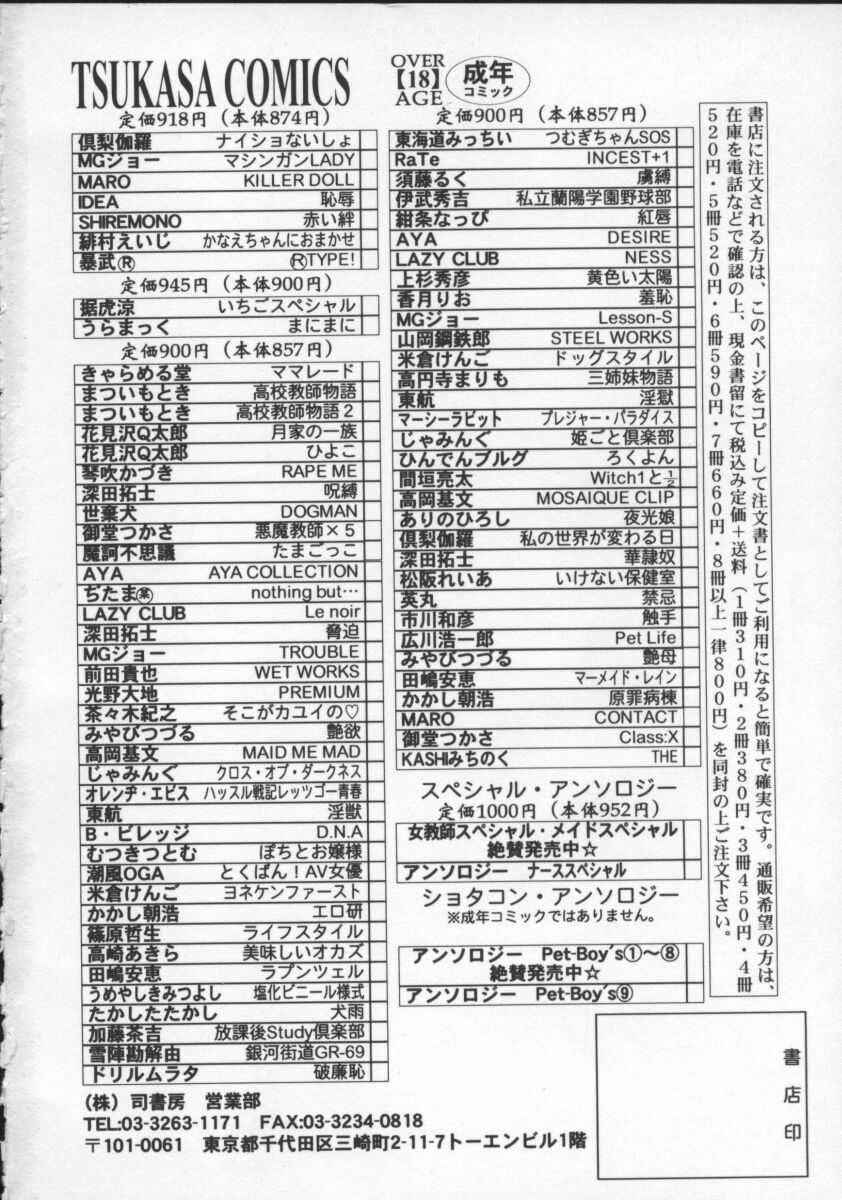 TSUKASA COMICS
OVER
【18】
AGE
成年
コミック
定価918円（本体874円）
倶梨伽羅 ナイショないしょ
MGジョー マシンガンLADY
MARO KILLER DOLL
IDEA 恥辱
SHIREMONO 赤い絆
緋村えいじ かなえちゃんにおまかせ
暴武Ⓡ ⓇTYPE!
定価945円（本体900円）
据虎涼 いちごスペシャル
うらまっく まにまに
定価900円（本体857円）
きゃらめる堂 ママレード
まついもとき 高校教師物語
まついもとき 高校教師物語2
花見沢Q太郎 月家の一族
花見沢Q太郎 ひよこ
琴吹かづき RAPE ME
深田拓士 呪縛
世棄犬 DOGMAN
御堂つかさ 悪魔教師×5
魔訶不思議 たまごっこ
AYA AYA COLLECTION
ぢたま㊗ nothing but…
LAZY CLUB Le noir
深田拓士 脅迫
MGジョー TROUBLE
前田貴也 WET WORKS
光野大地 PREMIUM
茶々木紀之 そこがカユイの♡
みやびつづる 艶欲
高岡基文 MAID ME MAD
じゃみんぐ クロス・オブ・ダークネス
オレンヂ・エビス ハッスル戦記レッツゴー青春
東航 淫獣
B・ビレッジ D.N.A
むつきつとむ ぽちとお嬢様
潮風OGA とくばん！AV女優
米倉けんご ヨネケンファースト
かかし朝浩 エロ研
篠原哲生 ライフスタイル
高崎あきら 美味しいオカズ
田嶋安恵 ラプンツェル
うめやしきみつよし 塩化ビニール様式
たかしたたかし 犬雨
加藤茶吉 放課後Study倶楽部
雪陣勘解由 銀河街道GR-69
ドリルムラタ 破廉恥
定価900円（本体857円）
東海道みっちい つむぎちゃんSOS
RaTe INCEST+1
須藤るく 虜縛
伊武秀吉 私立蘭陽学園野球部
紺条なっぴ 紅唇
AYA DESIRE
LAZY CLUB NESS
上杉秀彦 黄色い太陽
香月りお 羞恥
MGジョー Lesson-S
山岡鋼鉄郎 STEEL WORKS
米倉けんご ドッグスタイル
高円寺まりも 三姉妹物語
東航 淫獄
マーシーラビット プレジャー・パラダイス
じゃみんぐ 姫ごと倶楽部
ひんでんブルグ ろくよん
間垣亮太 Witch1と½
高岡基文 MOSAIQUE CLIP
ありのひろし 夜光娘
倶梨伽羅 私の世界が変わる日
深田拓士 華隷奴
松阪れいあ いけない保健室
英丸 禁忌
市川和彦 触手
広川浩一郎 Pet Life
みやびつづる 艶母
田嶋安恵 マーメイド・レイン
かかし朝浩 原罪病棟
MARO CONTACT
御堂つかさ Class:X
KASHIみちのく THE
スペシャル・アンソロジー
定価1000円（本体952円）
女教師スペシャル・メイドスペシャル
絶賛発売中☆
アンソロジー ナーススペシャル
ショタコン・アンソロジー
※成年コミックではありません。
アンソロジー Pet-Boy's①～⑧
絶賛発売中☆
アンソロジー Pet-Boy's⑨
書店に注文される方は、このページをコピーして注文書としてご利用になると簡単で確実です。通販希望の方は、
在庫を電話などで確認の上、現金書留にて税込み定価＋送料（1冊310円・2冊380円・3冊450円・4冊
520円・5冊520円・6冊590円・7冊660円・8冊以上一律800円）を同封の上ご注文下さい。
書店印
（株）司書房 営業部
TEL:03-3263-1171 FAX:03-3234-0818
〒101-0061 東京都千代田区三崎町2-11-7トーエンビル1階